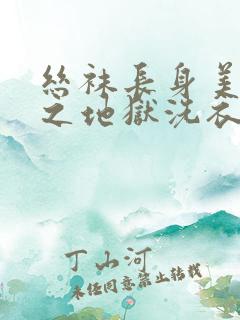 絲袜長身美
之地獄洗衣
丁山河
未经同意禁止转载